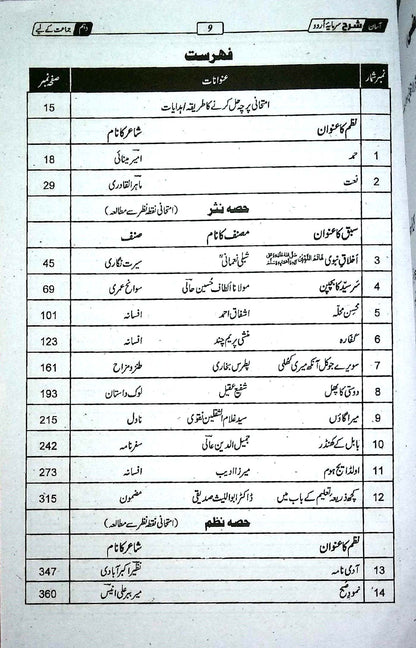 آسان شرح سرمایۂ اردو 9 دہم جماعت کے لیے
فہرست
نمبر شمار عنوانات صفحہ نمبر
امتحانی پرچہ حل کرنے کا طریقہ / ہدایات 15
نظم کا عنوان شاعر کا نام
1 حمد امیر مینائی 18
2 نعت ماہر القادری 29
حصہ نثر (امتحانی نقطۂ نظر سے مطالعہ)
سبق کا عنوان مصنف کا نام صنف
3 اخلاقِ نبوی شبلی نعمانی سیرت نگاری 45
4 سرسید کا بچپن مولانا الطاف حسین حالی سوانح عمری 69
5 محسن محلّہ اشفاق احمد افسانہ 101
6 کفارہ منشی پریم چند افسانہ 123
7 سویرے جو کل آنکھ میری کھلی پطرس بخاری طنز و مزاح 161
8 دوستی کا پھل شفیع عقیل لوک داستان 193
9. میرا گاؤں سید غلام الثقلین نقوی ناول 215
10 بابل کے کھنڈر جمیل الدین عالی سفرنامہ 242
11 اولڈ ایج ہوم میرزا ادیب افسانہ 273
12 کچھ ذریعہ تعلیم کے باب میں ڈاکٹر ابواللیث صدیقی مضمون 315
حصہ نظم (امتحانی نقطۂ نظر سے مطالعہ)
نظم کا عنوان شاعر کا نام
13 آدمی نامہ نظیر اکبر آبادی 347
14 نمودِ صبح میر ببر علی انیس 360